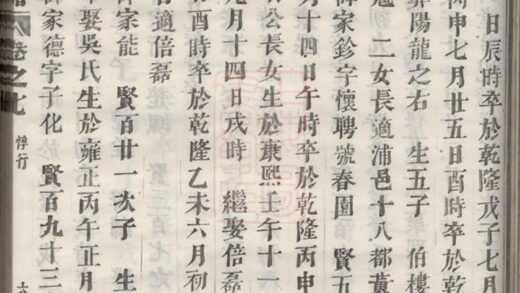 日辰時卒於乾隆戊子七月
丙申七月廿五日酉時卒於乾
葬陽龍之右 生五子 伯樓
冠 二女長適浦邑十八都黃
家鈐字懷聘號春園 賢五
月十四日午時卒於乾隆丙申
公長女生於康熙壬午十一
九月十四日戌時 繼娶倍磊
酉時卒於乾隆乙未六月初
適倍磊
家能 賢百廿一次子 生
娶吳氏生於雍正丙午正月
家德字子化 賢百九十三
卷之七 悙行